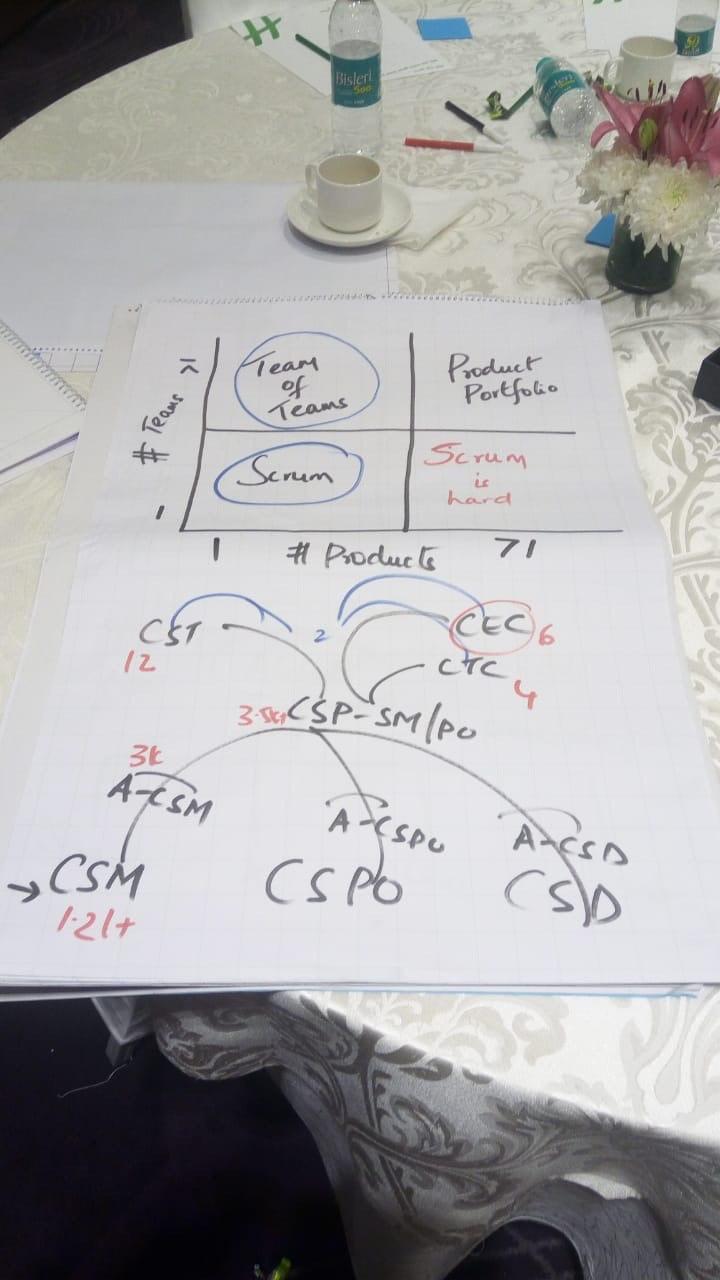 Bisleri
500
# Teams
>1
1
Team
of
Teams
Product
Portfolio
Scrum
Scrum
is
hard
1
# Products
>1
CST
12
2
CEC
6
CTC
4
CSP-SM/PO
3k
A-CSM
A-CSPO
A-CSD
→ CSM
CSPO
CSD
1.2 l+